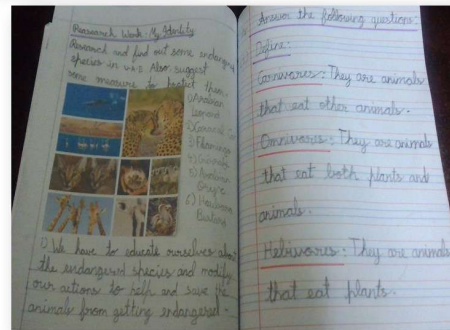 Research Work: My Identity
Research and find out some endangered
species in U.A.E. Also suggest
some measure to protect them.
1) Arabian
Leopard
3) Flamingo
5) Arabian
Oryx
6) Houbara
Bustard
1) We have to educate ourselves about
the endangered species and modify
our actions to help and save the
animals from getting endangered.
Answer the following questions:
Define:
Carnivores: They are animals
that eat other animals.
Omnivores: They are animals
that eat both plants and
animals.
Hebivores: They are animals
that eat plants.